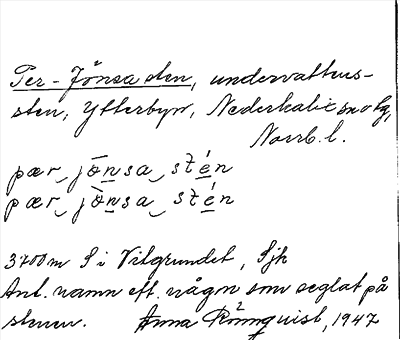 Per-Jönsa sten, undervattens-
sten, Ytterbyn, Nederkalix sn o hg,
Norrb. l.
pær‿jōn̲sa‿sté̲n
pær‿jòn̲sa‿sté̲n
3700 m S i Vitgrundet, Sjk
Ant. namn eft. någon som seglat på
stenen. Anna Rönnquist, 1947